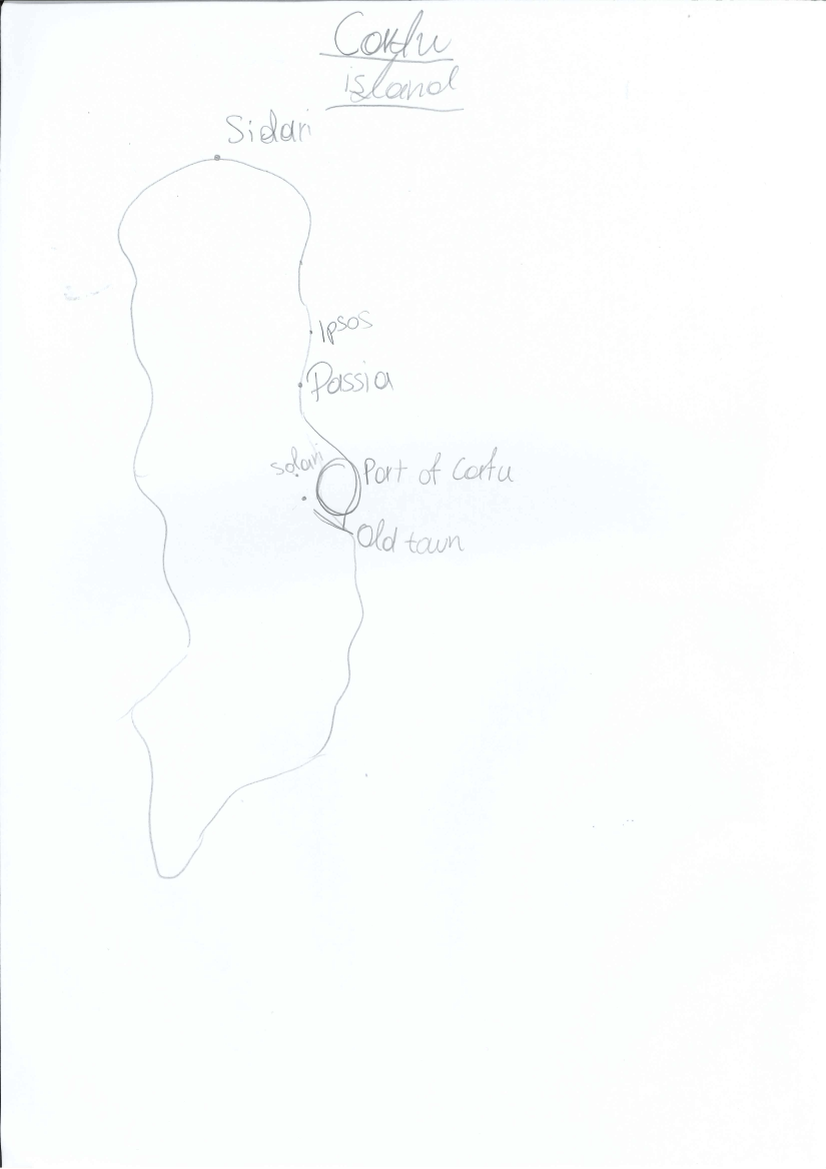 Corfu
island
Sidari
Ipsos
Passia
solari
Port of Corfu
Old town